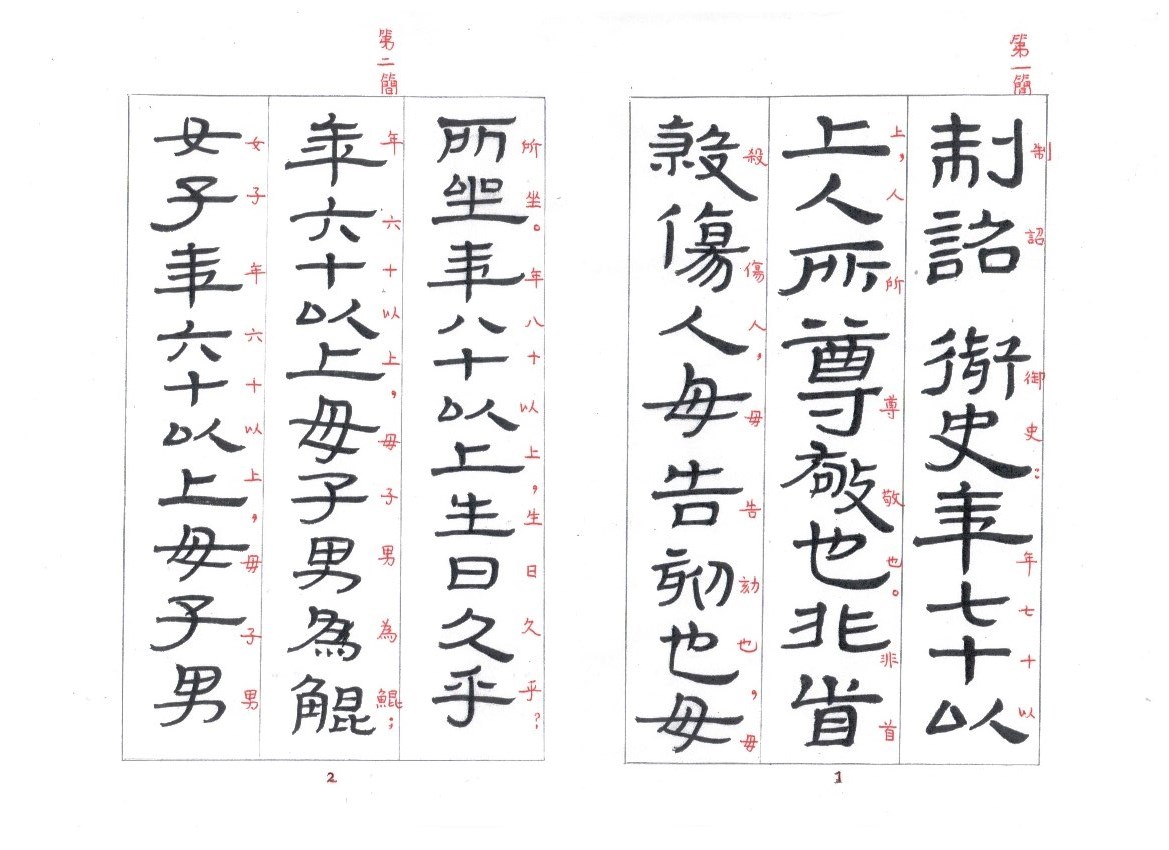 第一簡
制詔 御史年七十以
制詔御史：年七十以
上人所尊敬也非首
上，人所尊敬也。非首
殺傷人毋告劾也毋
殺傷人，毋告劾也，毋
1
第二簡
所坐年八十以上生日久乎
所坐。年八十以上，生日久乎？
年六十以上毋子男為鯤
年六十以上，毋子男為鯤；
女子年六十以上毋子男
女子年六十以上，毋子男
2